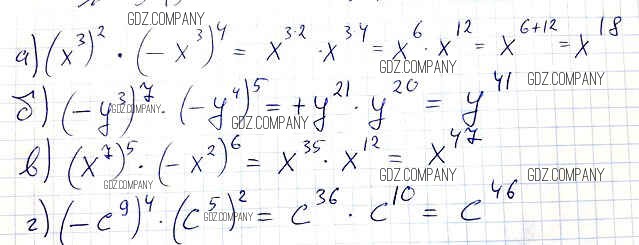 GDZ.COMPANY
а) (x³)² · (−x³)⁴ = x³·² · x³·⁴ = x⁶ · x¹² = x⁶⁺¹² = x¹⁸
GDZ.COMPANY GDZ.COMPANY
б) (−y³)⁷ · (−y⁴)⁵ = +y²¹ · y²⁰ = y⁴¹
GDZ.COMPANY GDZ.COMPANY
в) (x⁷)⁵ · (−x²)⁶ = x³⁵ · x¹² = x⁴⁷
GDZ.COMPANY GDZ.COMPANY GDZ.COMPANY
г) (−c⁹)⁴ · (c⁵)² = c³⁶ · c¹⁰ = c⁴⁶
GDZ.COMPANY